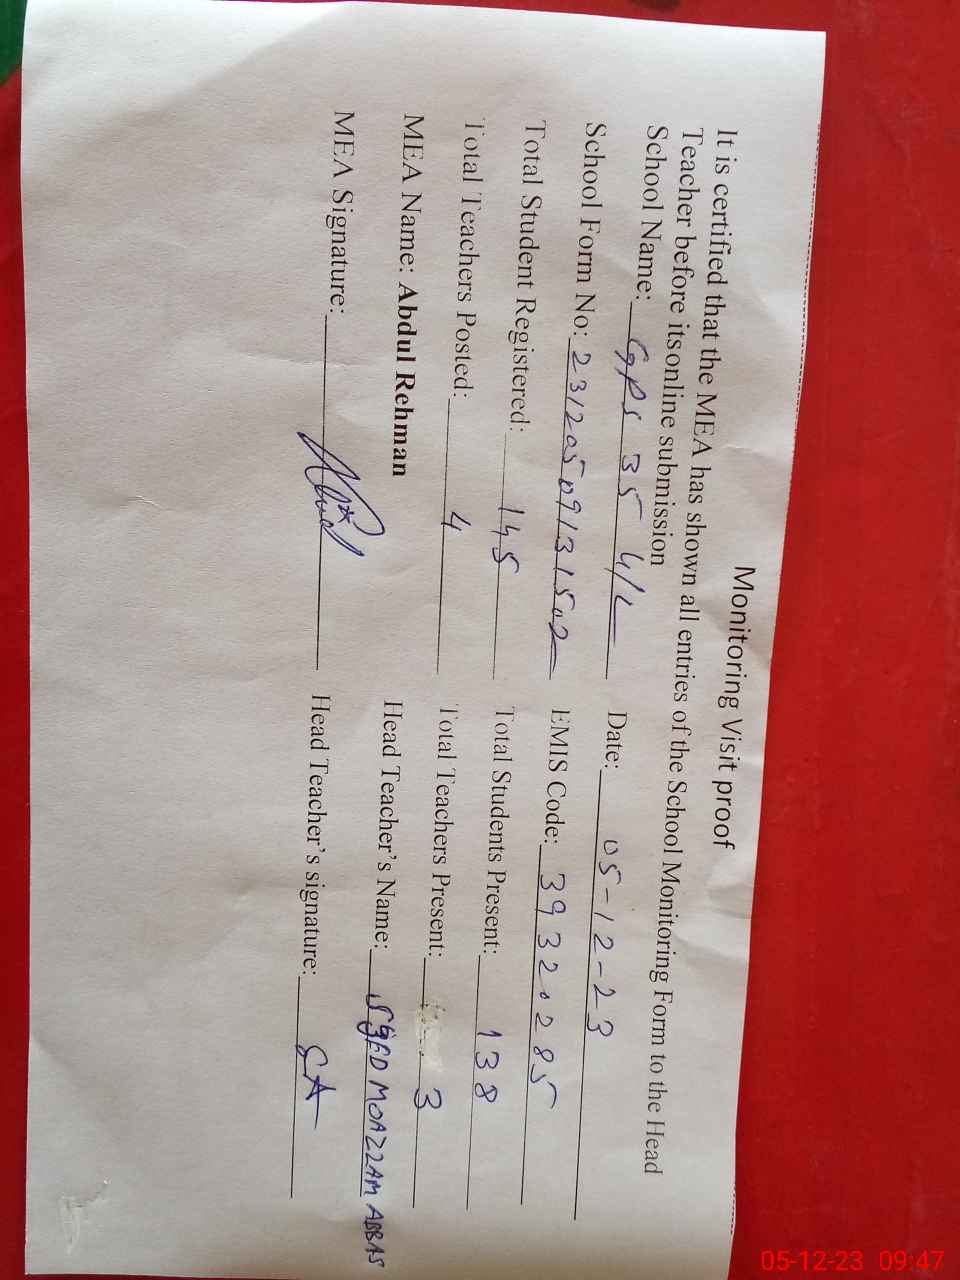 Monitoring Visit proof
It is certified that the MEA has shown all entries of the School Monitoring Form to the Head
Teacher before its online submission
School Name: GPS 35 4/L Date: 05-12-23
School Form No: 23120509131502 EMIS Code: 39320285
Total Student Registered: 145 Total Students Present: 138
Total Teachers Posted: 4 Total Teachers Present: 3
MEA Name: Abdul Rehman Head Teacher's Name: SYED MOAZZAM ABBAS
MEA Signature: Head Teacher's signature: SA
05-12-23 09:47